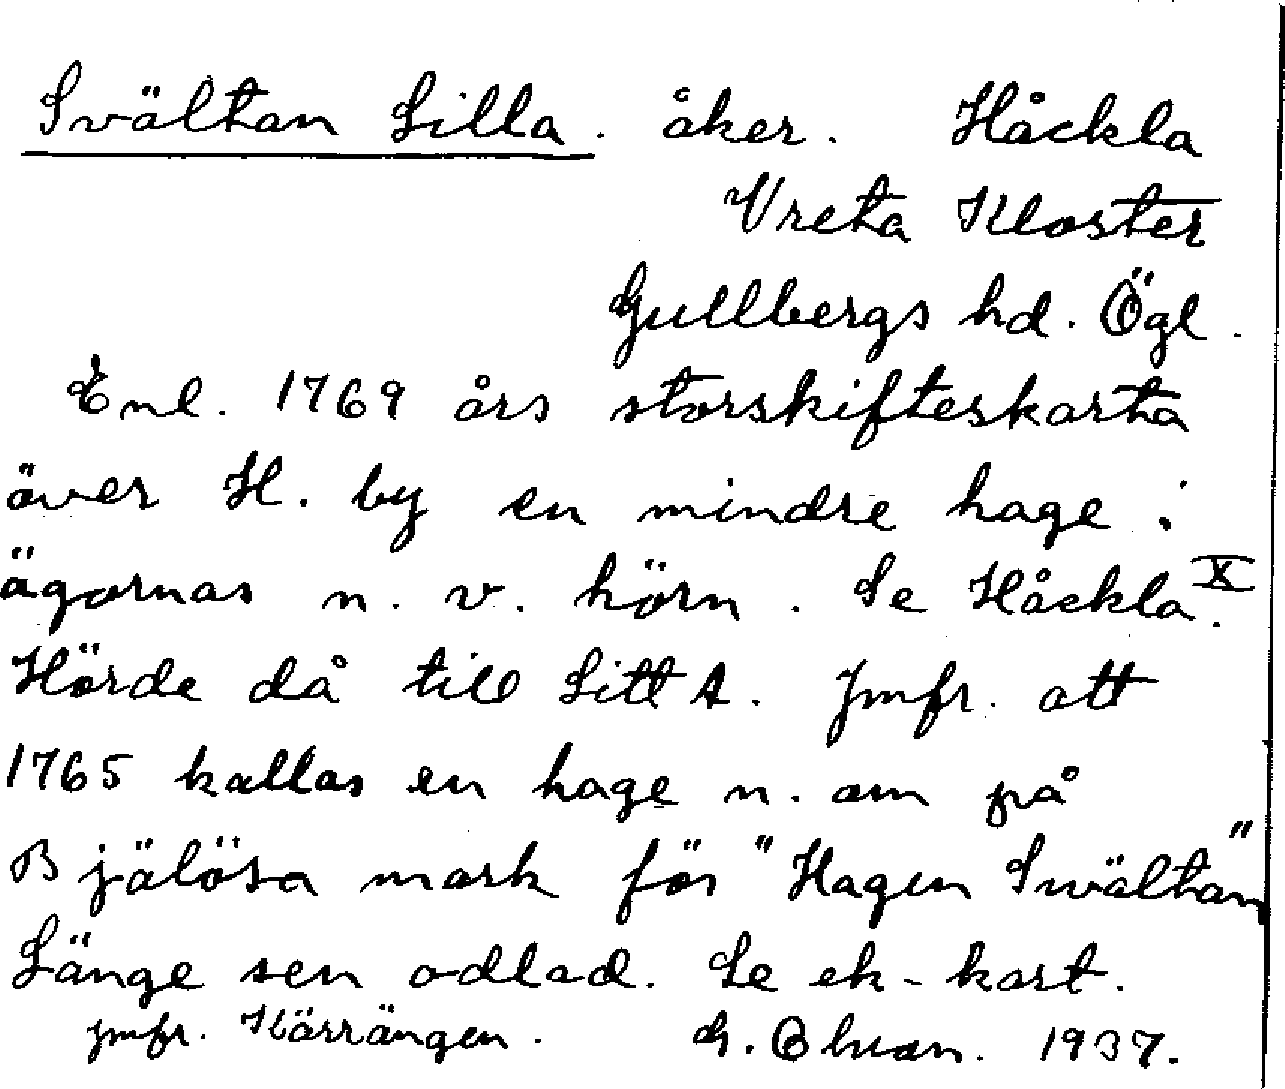 Svältan Lilla. åker. Håckla
Vreta Kloster
Gullbergs hd. Ögl.
Enl. 1769 års storskifteskarta
över H. by en mindre hage i
ägornas n. v. hörn. Se Håckla X.
Hörde då till Litt A. Jmfr. att
1765 kallas en hage n. om på
Bjälösa mark för "Hagen Swältan"
Länge sen odlad. Se ek-kart.
jmfr. Kärrängen. 1937.